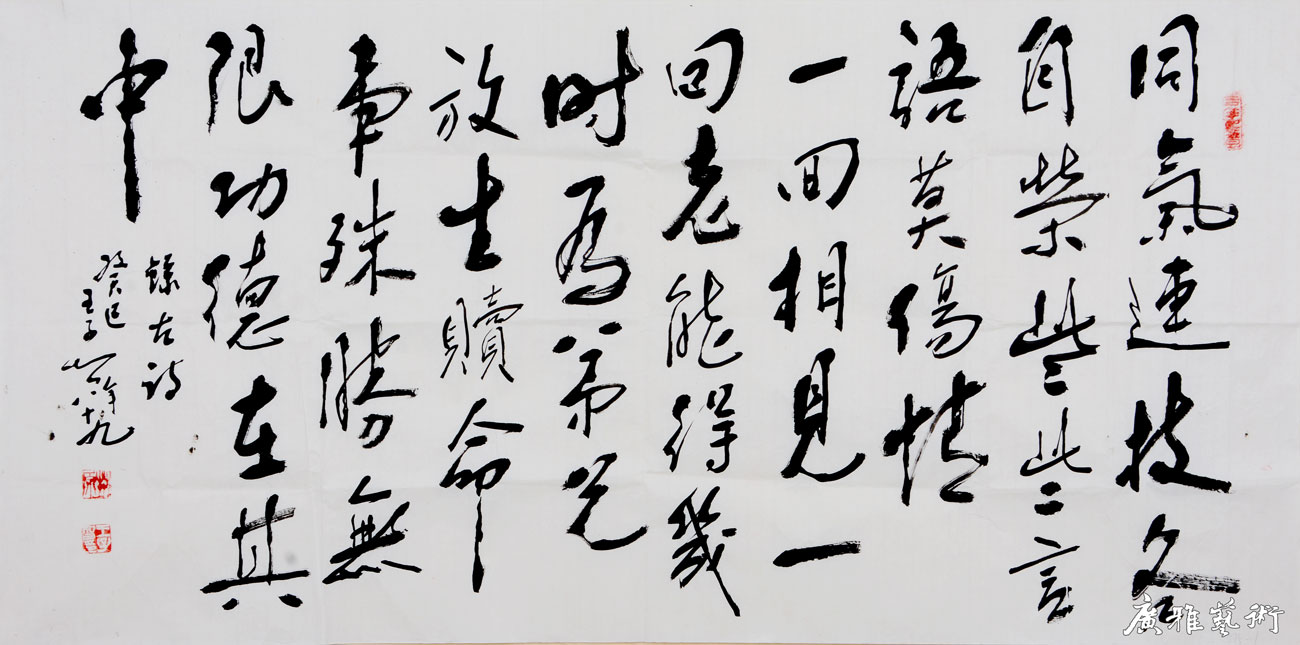 同氣連枝各
自榮些些言
語莫傷情
一回相見一
回老能得幾
时為弟兄
放生贖命
事殊勝無
限功德在其
中
錄古詩
癸巳
廣雅藝術